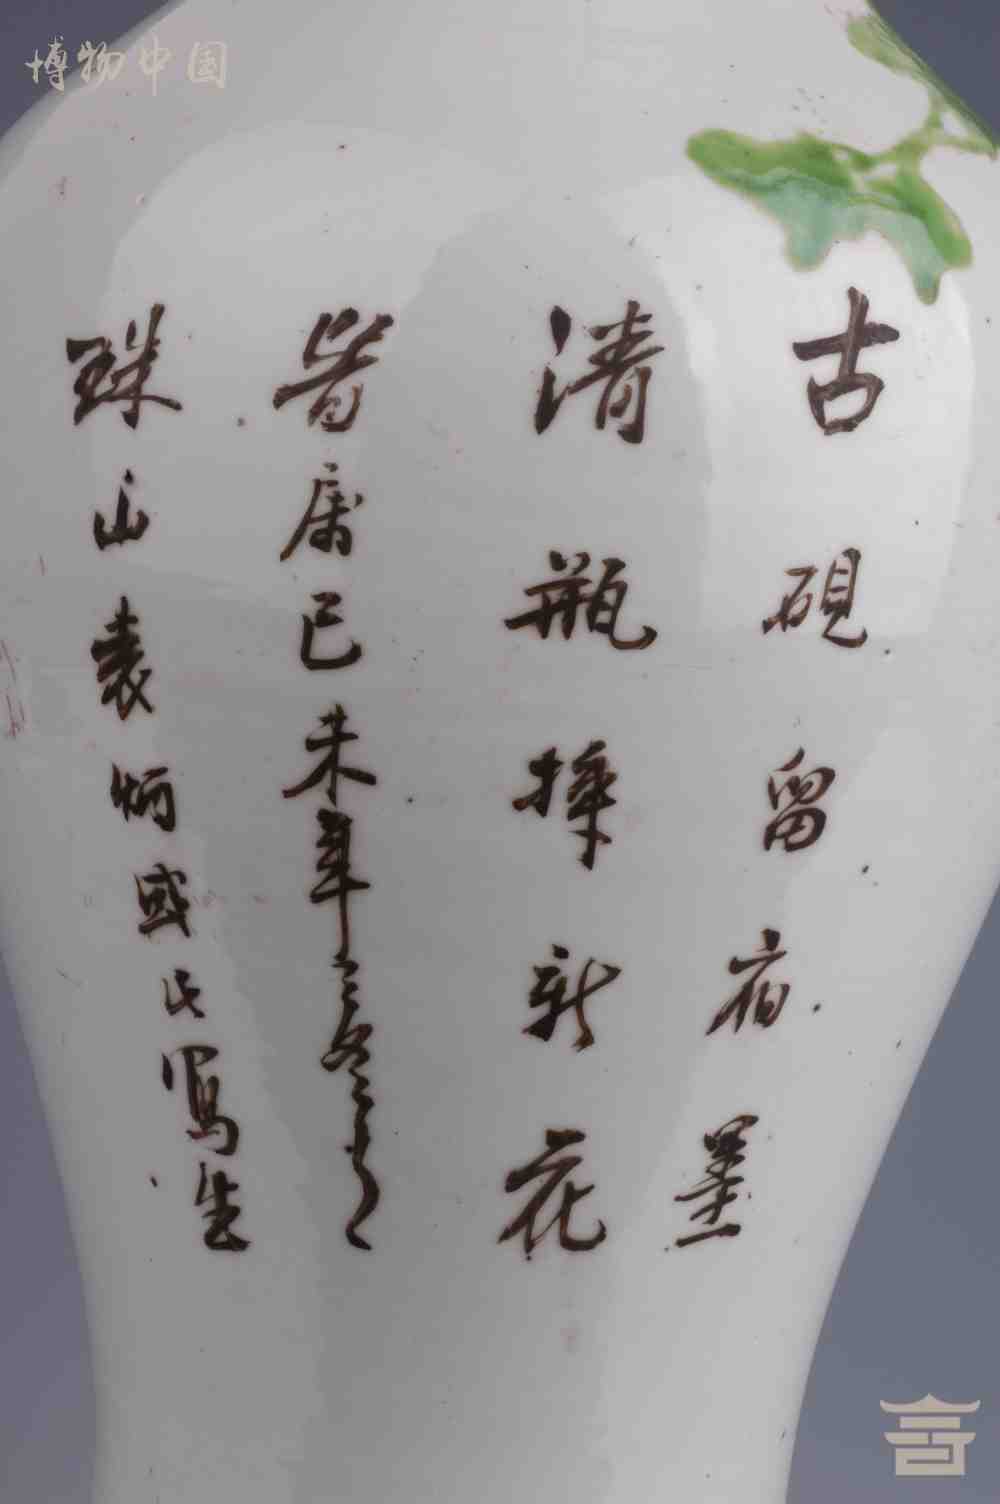 古硯留宿墨
清瓶插新花
時屬己未年之冬月
珠山袁炳國氏寫生
博物中国